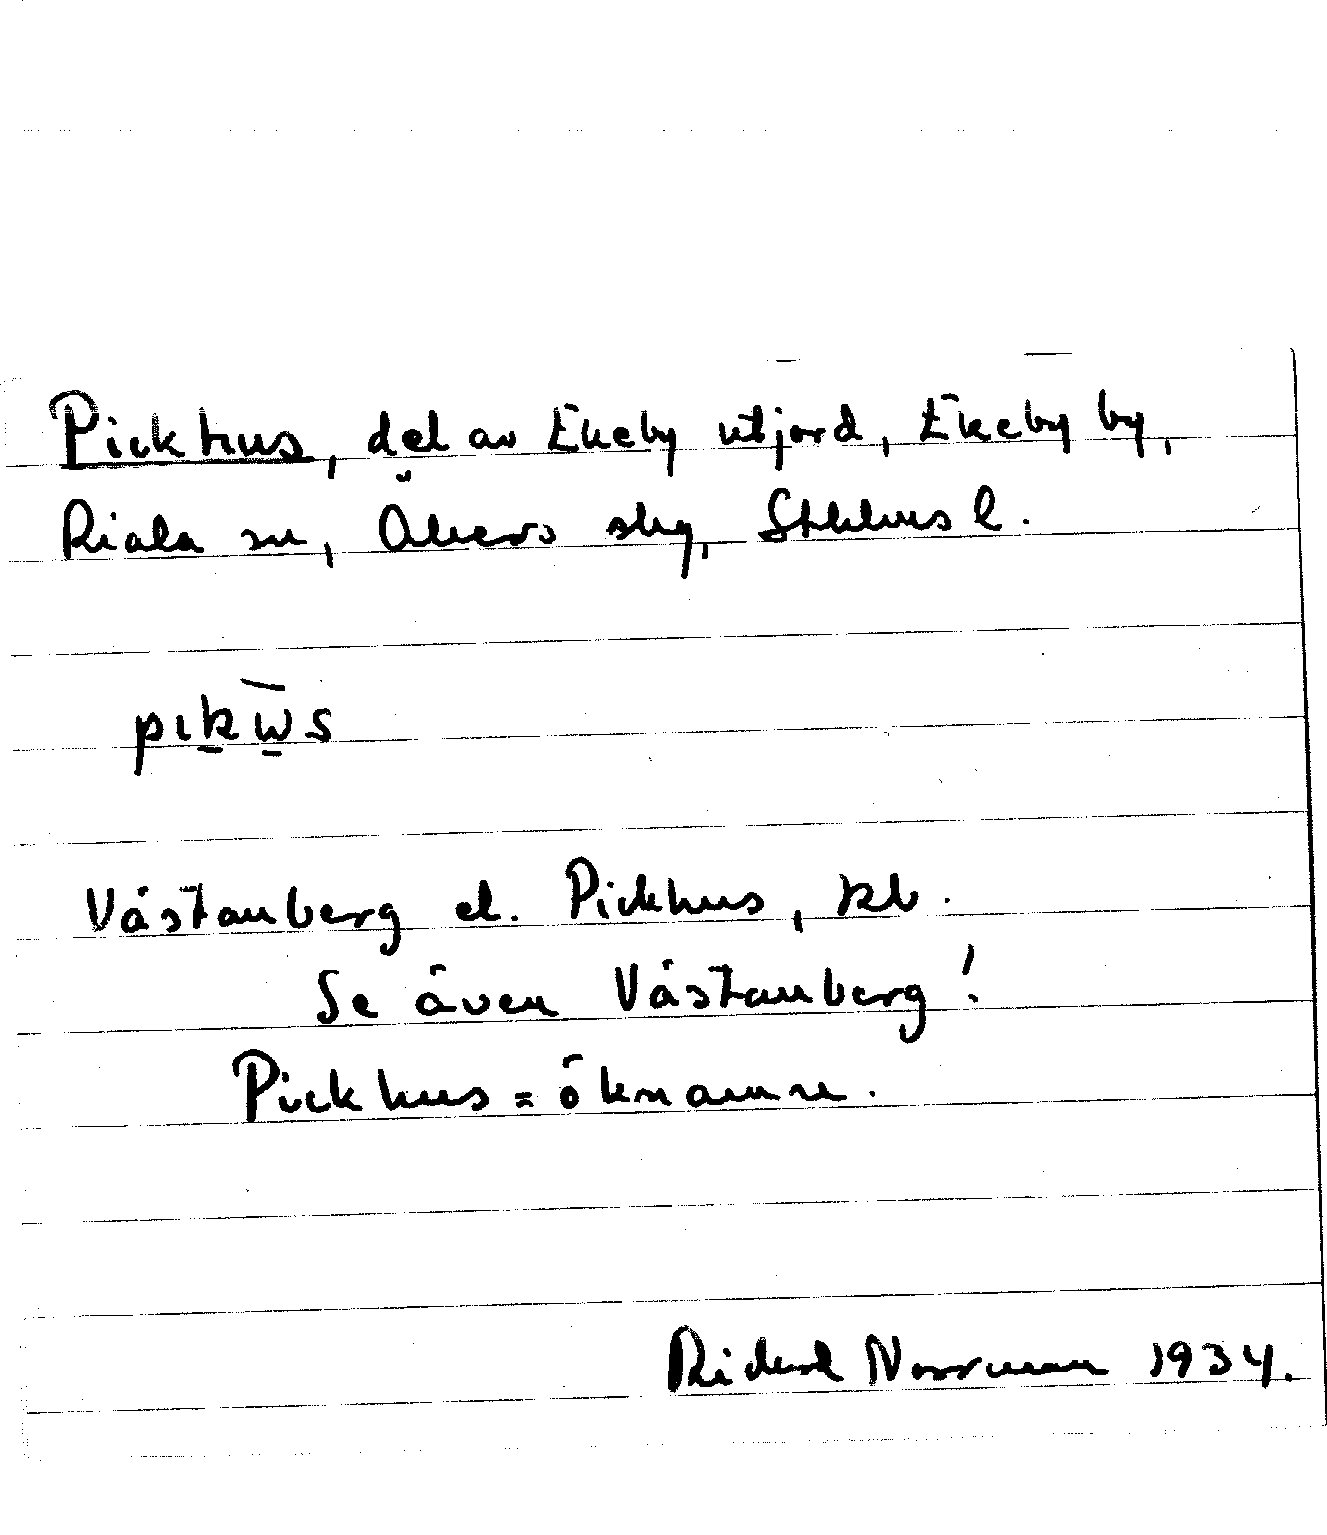 Pickhus, del av Ekeby utjord, Ekeby by,
Riala sn, Åkers skg, Sthlms l.
pıkw̄s
Västanberg el. Pickhus, kb.
Se även Västanberg!
Pickhus = öknamn.
Rickard Norrman 1934.